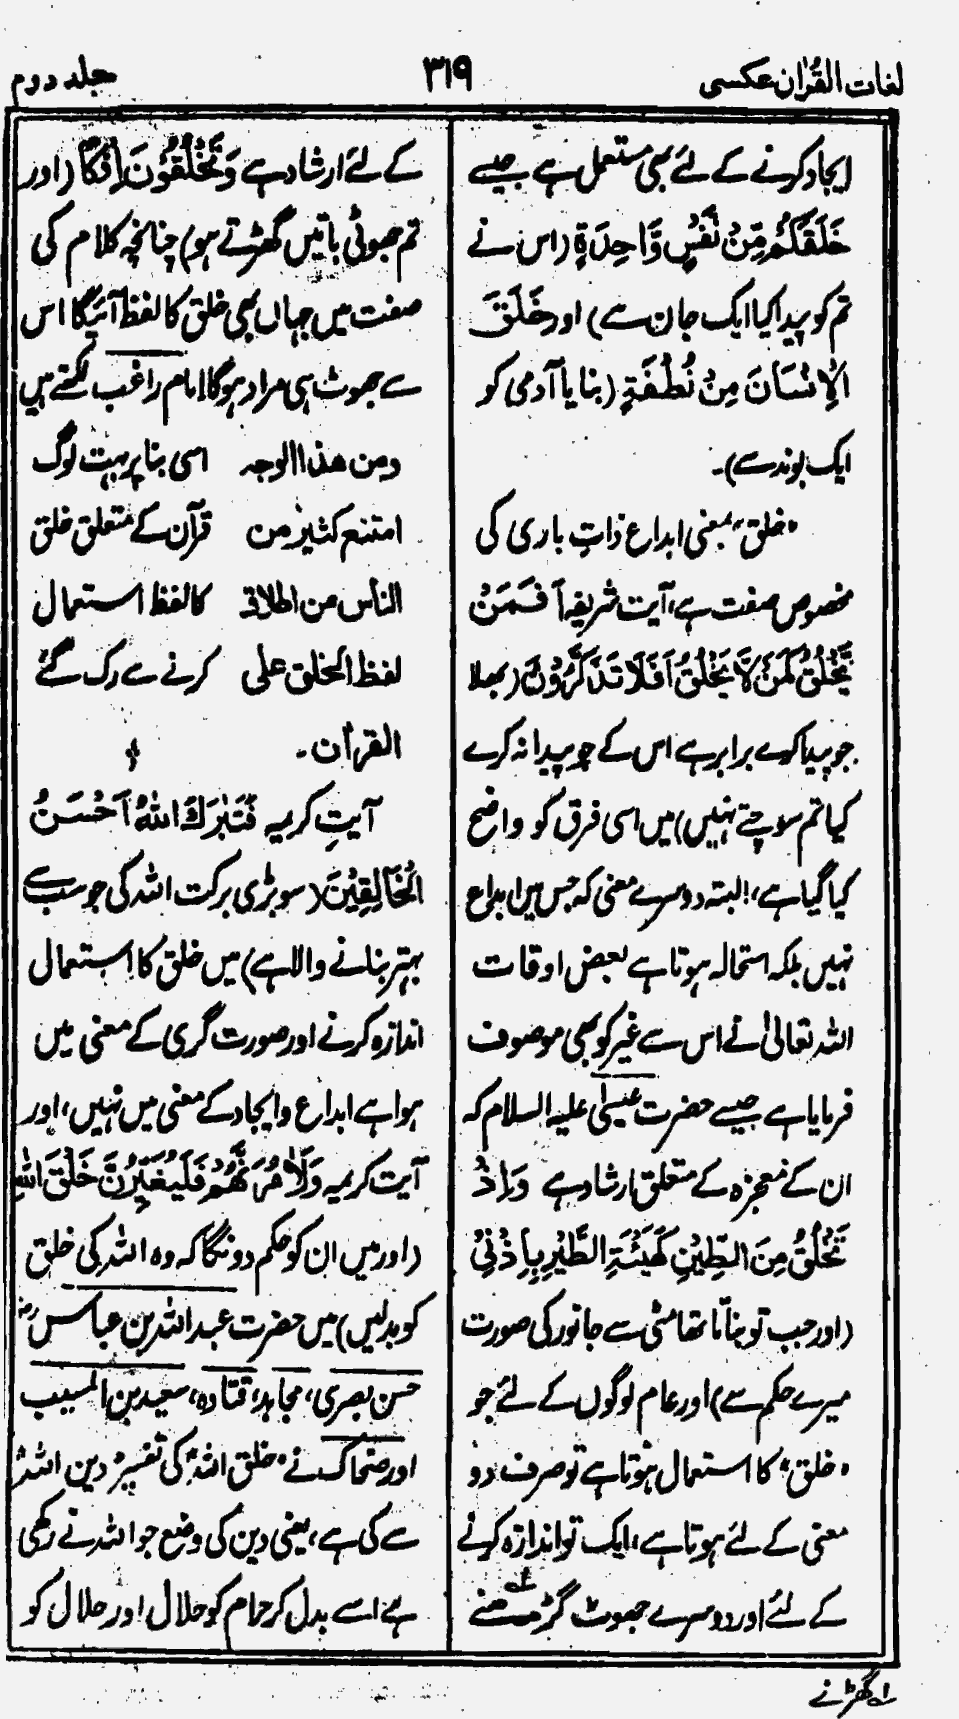 لغات القرآن عکسی
۳۱۹
جلد دوم
ایجاد کرنے کے لئے بھی مستعمل ہے جیسے
خَلَقَكُمْ مِّنْ نَّفْسٍ وَّاحِدَةٍ (اس نے
تم کو پیدا کیا ایک جان سے) اور خَلَقَ
الْاِنْسَانَ مِنْ نُّطْفَةٍ (بنایا آدمی کو
ایک بوند سے)۔
"خلق" بمعنی ابداع ذاتِ باری کی
مخصوص صفت ہے، آیت شریفہ اَفَمَنْ
يَّخْلُقُ كَمَنْ لَّا يَخْلُقُ اَفَلَا تَذَكَّرُوْنَ (بھلا
جو پیدا کرے برابر ہے اس کے جو پیدا نہ کرے
کیا تم سوچتے نہیں) میں اسی فرق کو واضح
کیا گیا ہے، البتہ دوسرے معنی کہ جس میں ابداع
نہیں بلکہ استحالہ ہوتا ہے بعض اوقات
اللہ تعالیٰ نے اس سے غیر کو بھی موصوف
فرمایا ہے جیسے حضرت عیسیٰ علیہ السلام کہ
ان کے معجزہ کے متعلق ارشاد ہے وَاِذْ
تَخْلُقُ مِنَ الطِّيْنِ كَهَيْئَةِ الطَّيْرِ بِاِذْنِيْ
(اور جب تو بناتا تھا مٹی سے جانور کی صورت
میرے حکم سے) اور عام لوگوں کے لئے جو
"خلق" کا استعمال ہوتا ہے تو صرف دو
معنی کے لئے ہوتا ہے، ایک تو اندازہ کرنے
کے لئے اور دوسرے جھوٹ گڑھنے
کے لئے ارشاد ہے وَتَخْلُقُوْنَ اِفْكًا (اور
تم جھوٹی باتیں گھڑتے ہو) چنانچہ کلام کی
صفت میں جہاں بھی خلق کا لفظ آئیگا اس
سے جھوٹ ہی مراد ہوگا امام راغب لکھتے ہیں
ومن هذا الوجه اسی بنا پر بہت لوگ
امتنع كثير من قرآن کے متعلق خلق
الناس من اطلاق کا لفظ استعمال
لفظ الخلق على کرنے سے رک گئے
القرآن۔
آیتِ کریمہ فَتَبٰرَكَ اللّٰهُ اَحْسَنُ
الْخَالِقِيْنَ (سو بڑی برکت اللہ کی جو سب سے
بہتر بنانے والا ہے) میں خلق کا استعمال
اندازہ کرنے اور صورت گری کے معنی میں
ہوا ہے ابداع وایجاد کے معنی میں نہیں، اور
آیت کریمہ وَلَاٰمُرَنَّهُمْ فَلَيُغَيِّرُنَّ خَلْقَ اللّٰهِ
(اور میں ان کو حکم دونگا کہ وہ اللہ کی خلق
کو بدلیں) میں حضرت عبداللہ بن عباسؓ
حسن بصری، مجاہد، قتادہ، سعید بن المسیب
اور ضحاک نے "خلق اللہ" کی تفسیر "دین اللہ"
سے کی ہے، یعنی دین کی وضع جو اللہ نے رکھی
ہے اسے بدل کر حرام کو حلال اور حلال کو
۱ گھڑنے